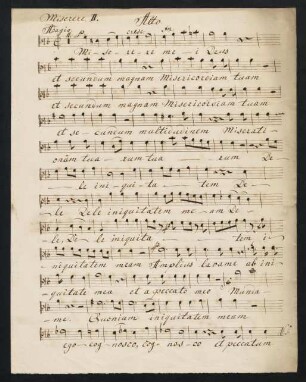 Miserere II. Alto
Adagio p cresc fm
Mi - se - re - re me - i Deus
et secundum magnam Misericordiam tuam
et secundum magnam Misericordiam tuam
et se - cundum multitudinem Miserati -
onum tua - rum tua - rum De -
le ini - qui - ta - tem De -
le Dele iniquitatem me - am De -
le, De - le iniquita - tem i -
niquitatem meam Amplius lavame ab ini -
quitate mea et a peccato meo Munda
me Quoniam iniquitatem meam
ego - cog - nosco, cog - nos - co et peccatum